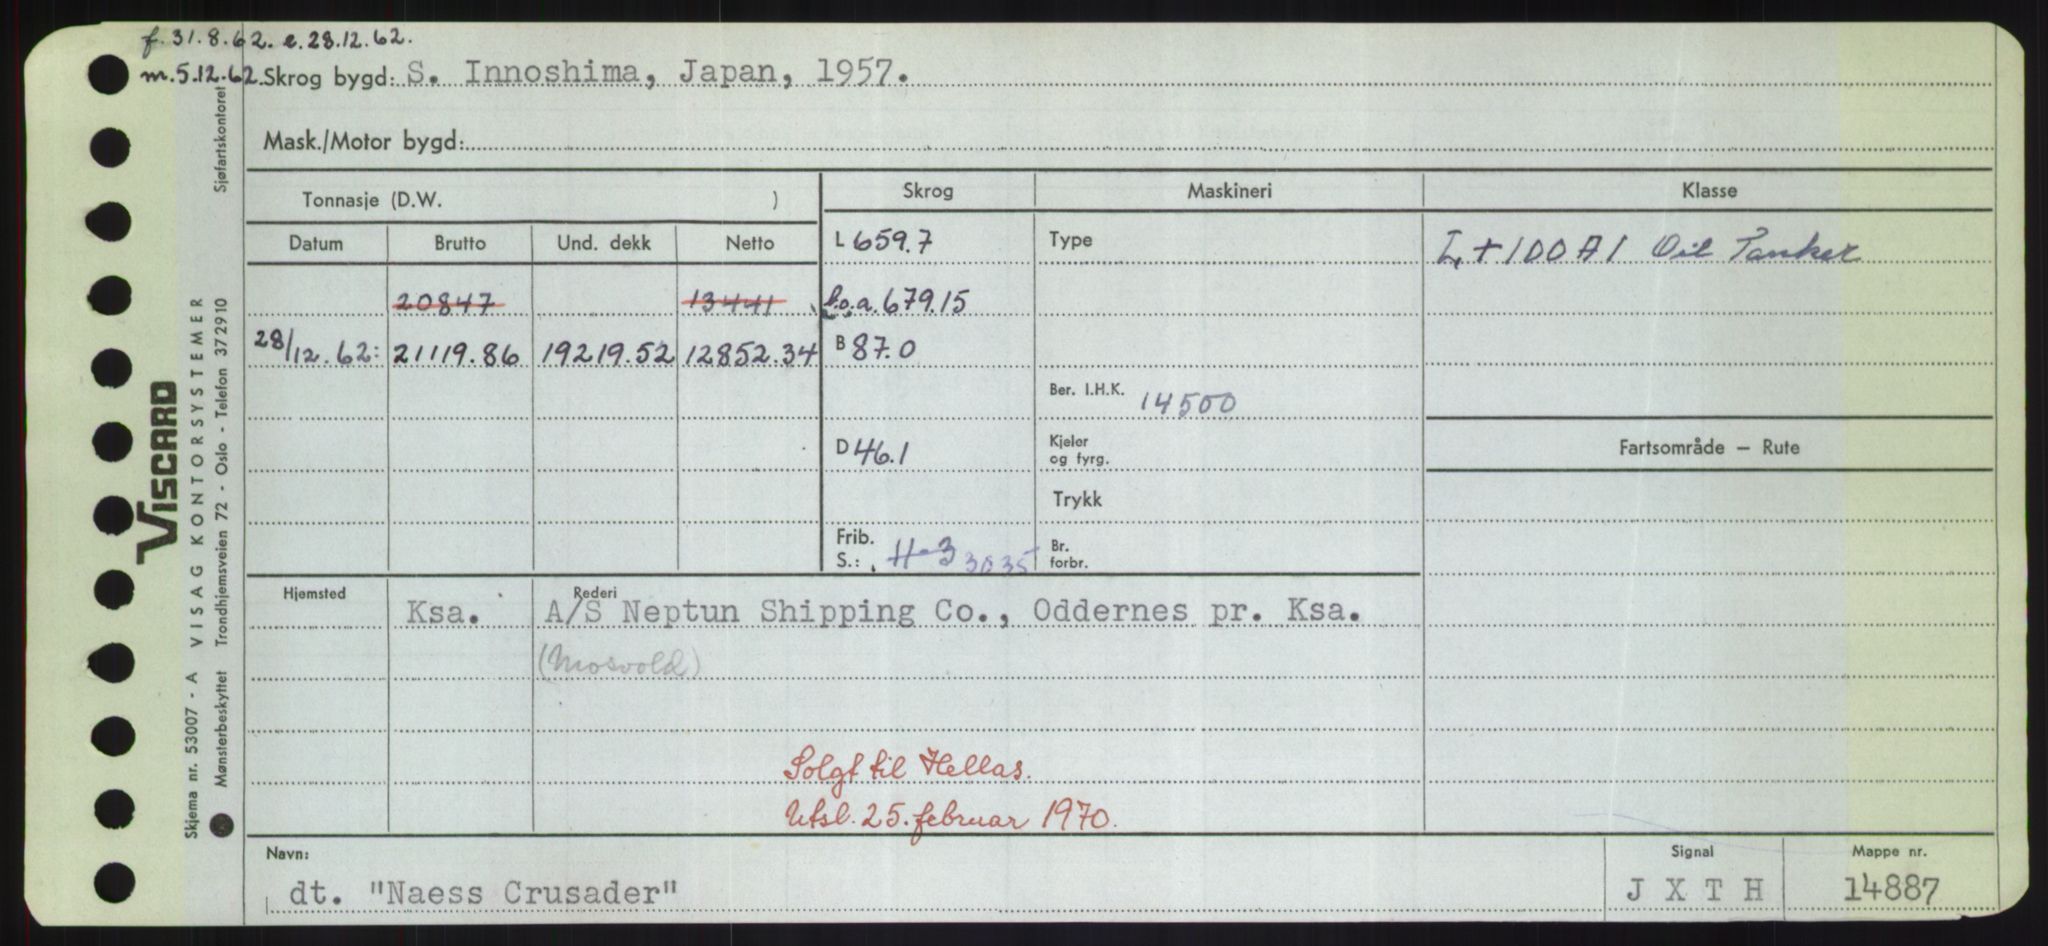 f. 31.8.62. e. 28.12.62.
m. 5.12.62. Skrog bygd: S. Innoshima, Japan, 1957.
Mask./Motor bygd:
Tonnasje (D.W. ) Skrog Maskineri Klasse
Datum Brutto Und. dekk Netto L 659.7 Type +100A1 Oil Tanker
20847 13441 l.o.a. 679.15
28/12.62: 21119.86 19219.52 12852.34 B 87.0
Ber. I.H.K. 14500
D 46.1 Kjeler og fyrg. Fartsområde — Rute
Trykk
Frib. S.: 11-3 3035 Br. forbr.
Hjemsted Rederi
Ksa. A/S Neptun Shipping Co., Oddernes pr. Ksa.
(Mosvold)
Solgt til Hellas.
Utsl. 25. februar 1970.
Navn: Signal Mappe nr.
dt. "Naess Crusader" J X T H 14887
VISCARD
Skjema nr. 53007 - A VISAG KONTORSYSTEMER
Mønsterbeskyttet Trondhjemsveien 72 - Oslo - Telefon 372910 Sjøfartskontoret